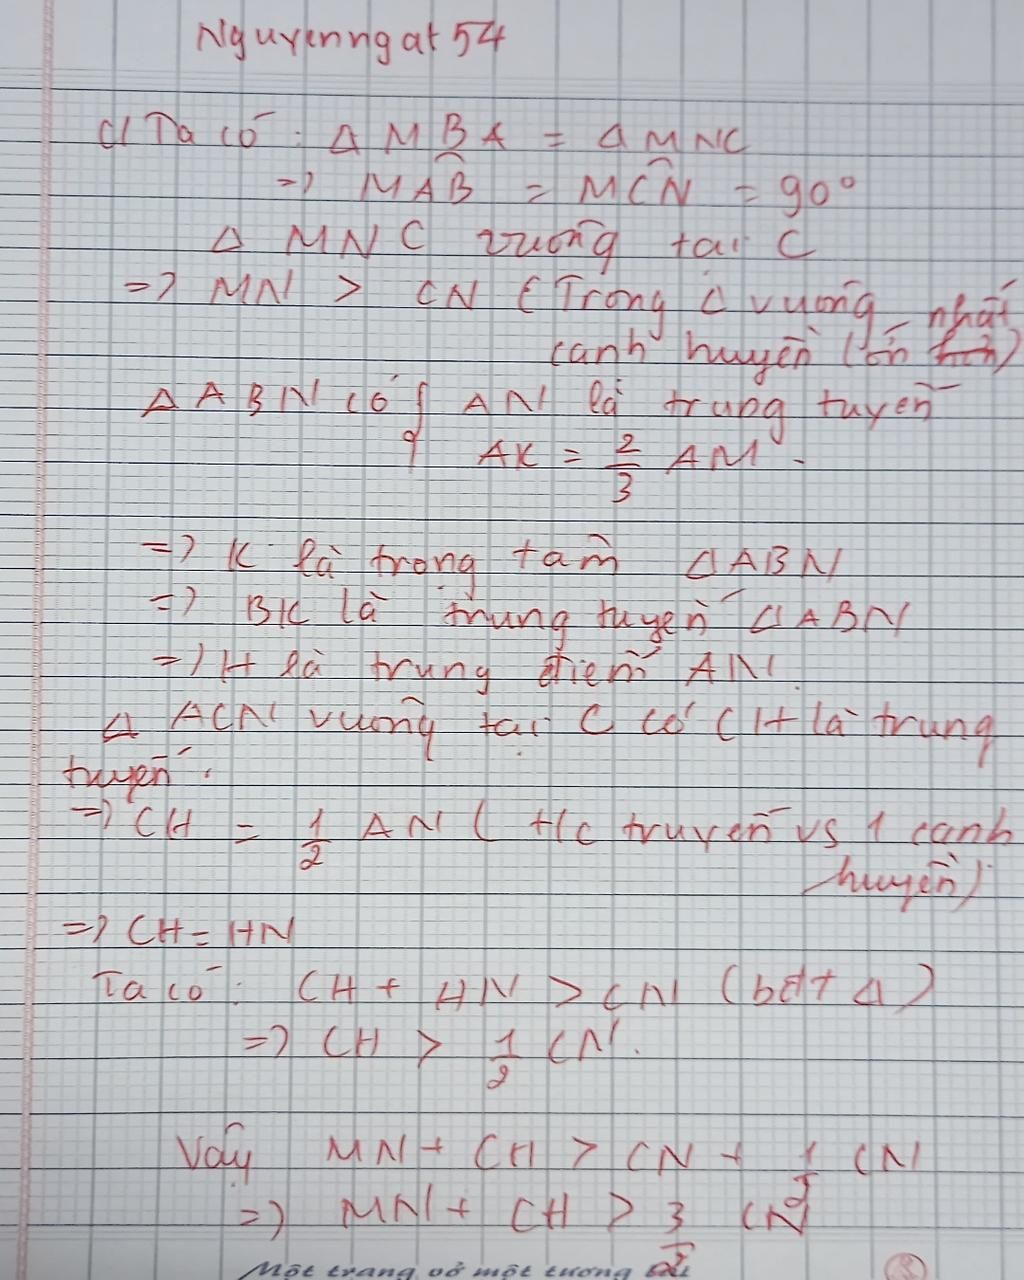 Nguyenngat54
c/ Ta có: Δ MBA = Δ MNC
=> MÂB = MĈN = 90°
Δ MNC vuông tại C
=> MN > CN (Trong Δ vuông
cạnh huyền lớn nhất)
Δ ABN có { AN là trung tuyến
AK = 2/3 AM.
=> K là trọng tâm Δ ABN
=> BK là trung tuyến Δ ABN
=> H là trung điểm AN.
Δ ACN vuông tại C có CH là trung
tuyến.
=> CH = 1/2 AN ( t/c truyến vs 1 cạnh
huyền)
=> CH = HN
Ta có: CH + HN > CN (bđt Δ)
=> CH > 1/2 CN.
Vậy MN + CH > CN + 1/2 CN
=> MN + CH > 3/2 CN
Một trang vở một tương lai